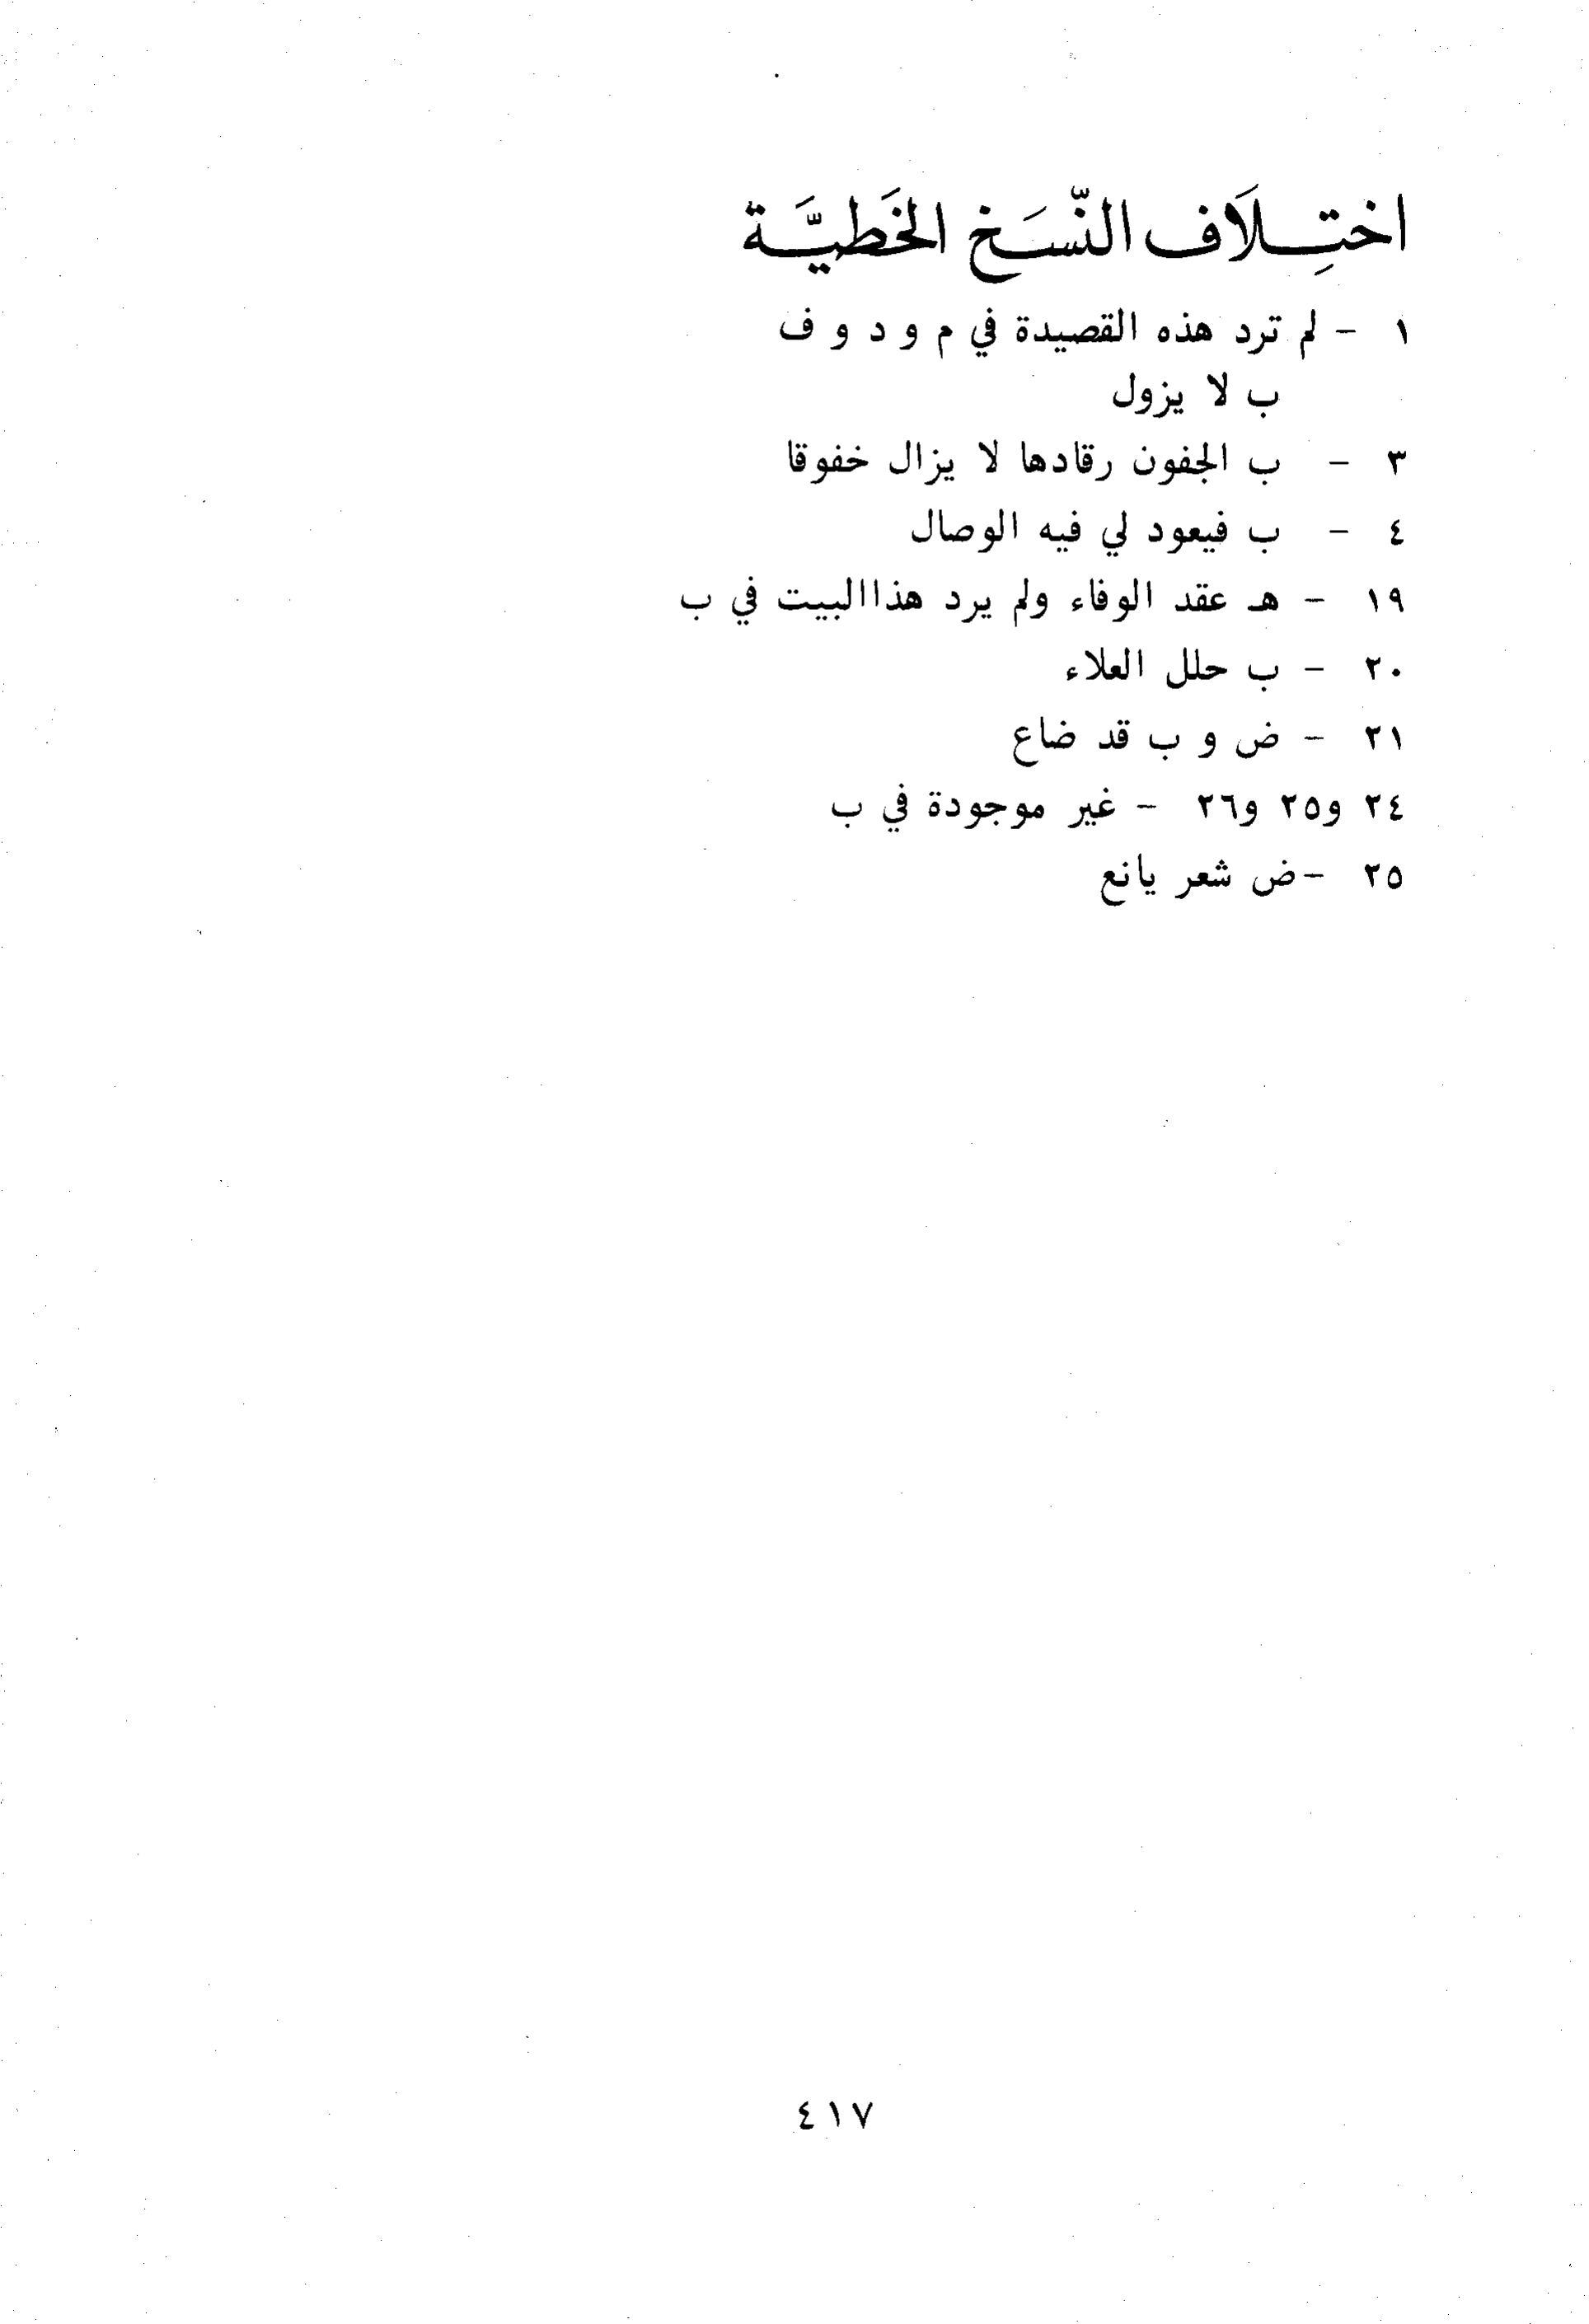 اختِلَاف النّسَخ الخَطيَّة
١ - لم ترد هذه القصيدة في م و د و ف
ب لا يزول
٣ - ب الجفون رقادها لا يزال خفوقا
٤ - ب فيعود لي فيه الوصال
١٩ - هـ عقد الوفاء ولم يرد هذاالبيت في ب
٢٠ - ب حلل العلاء
٢١ - ض و ب قد ضاع
٢٤ و٢٥ و٢٦ - غير موجودة في ب
٢٥ -ض شعر يانع
٤١٧